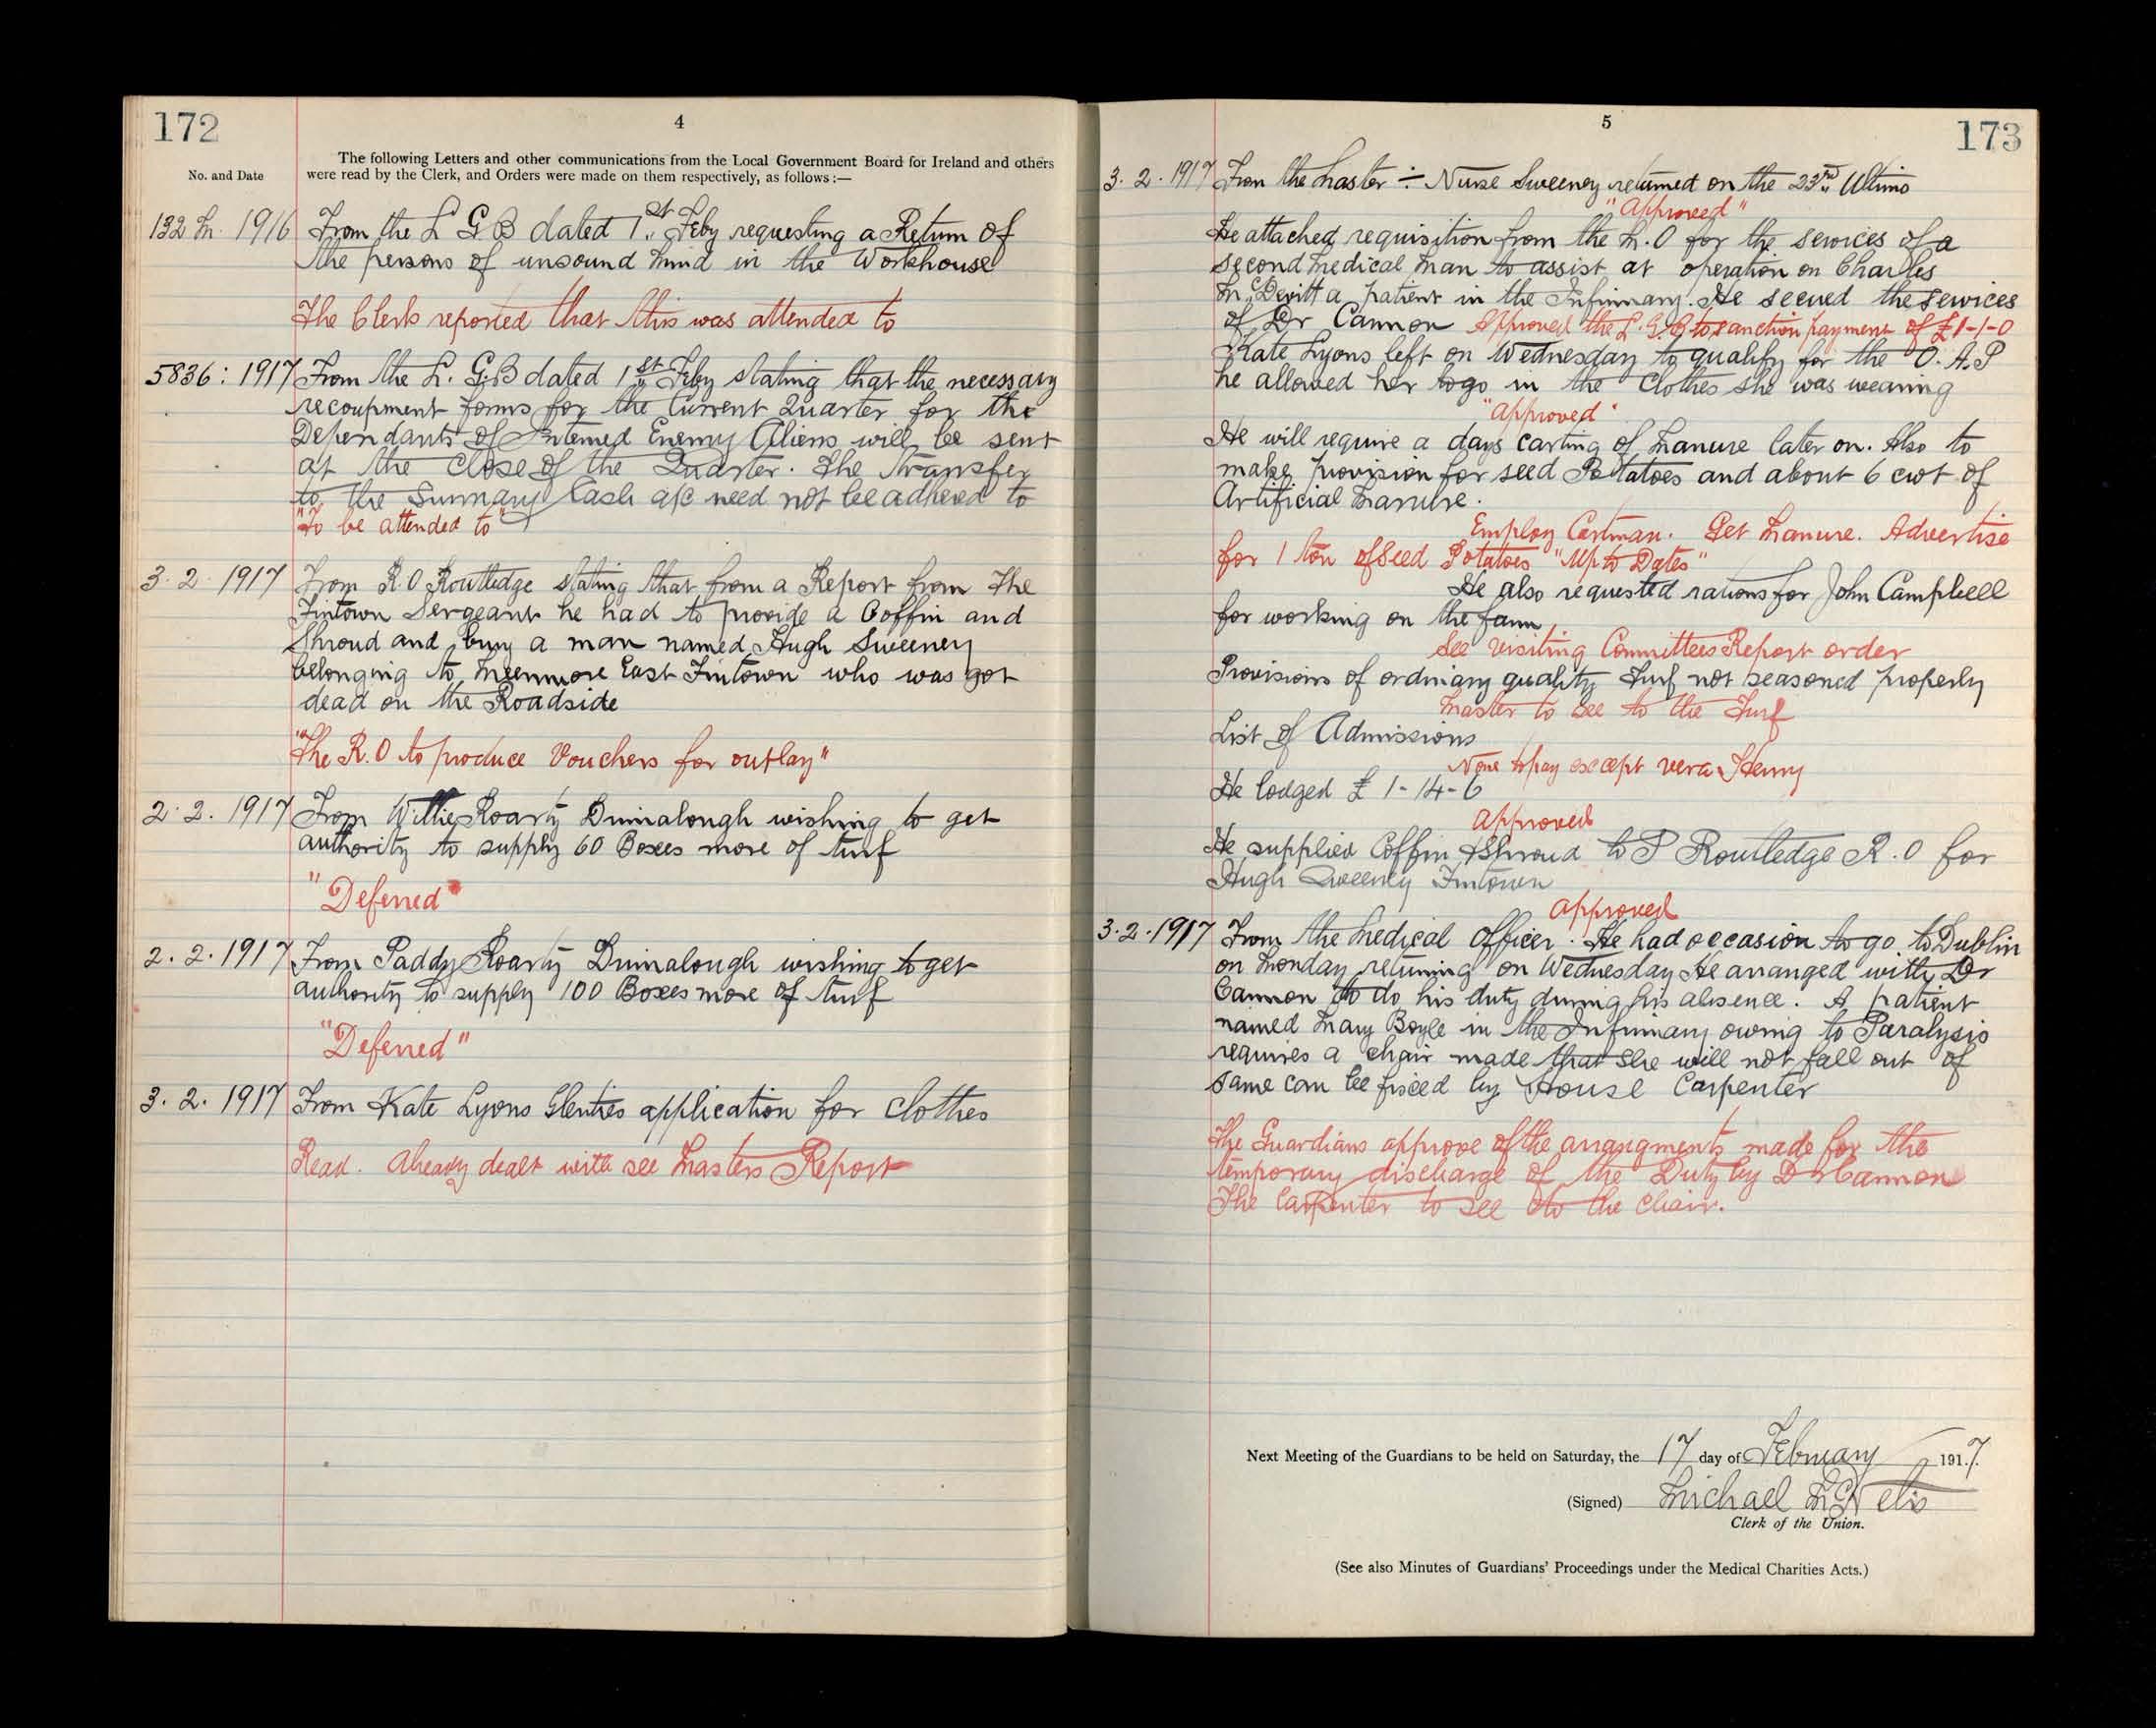 172
4
The following Letters and other communications from the Local Government Board for Ireland and others
No. and Date
were read by the Clerk, and Orders were made on them respectively, as follows :—
132 M. 1916 From the L G B dated 1st Feby requesting a Return of
the persons of unsound Mind in the Workhouse
The Clerk reported that this was attended to
5836 : 1917 From the L. G. B dated 1st Feby stating that the necessary
recoupment forms for the Current Quarter for the
Dependants of Interned Enemy Aliens will be sent
at the close of the Quarter. The transfer
to the Summary Cash a/c need not be adhered to
"To be attended to"
3. 2. 1917 From R.O Routledge stating that from a Report from the
Fintown Sergeant he had to provide a Coffin and
Shroud and bury a man named Hugh Sweeney
belonging to Meenmore East Fintown who was got
dead on the Roadside
"The R.O to produce Vouchers for outlay"
2. 2. 1917 From Willie Roarty Drimalough wishing to get
authority to supply 60 Boxes more of turf
"Deferred"
2. 2. 1917 From Paddy Roarty Drimalough wishing to get
authority to supply 100 Boxes more of turf
"Deferred"
3. 2. 1917 From Kate Lyons Glenties application for clothes
Read. Already dealt with see Masters Report
5
173
3. 2. 1917 From the Master :- Nurse Sweeney returned on the 23rd Ultimo
"Approved"
He attached requisition from the M.O for the services of a
second Medical Man to assist at operation on Charles
McDevitt a patient in the Infirmary. He secued the services
of Dr Cannon Approved the L.G.B to sanction payment of £1-1-0
Kate Lyons left on Wednesday to qualify for the O.A.P
he allowed her to go in the clothes she was wearing
"Approved"
He will require a days carting of Manure later on. Also to
make provision for seed Potatoes and about 6 cwt of
Artificial Manure.
Employ Cartman. Get Manure. Advertise
for 1 ton of Seed Potatoes "Up to Dates"
He also requested rations for John Campbell
for working on the farm
See Visiting Committees Report order
Provisions of ordinary quality Turf not seasoned properly
Master to see to the Turf
List of Admissions
None to pay except Vera Henry
He lodged £ 1-14-6
Approved
He supplied Coffin & Shroud to P Routledge R.O for
Hugh Sweeney Fintown
Approved
3. 2. 1917 From the Medical Officer. He had occasion to go to Dublin
on Monday returning on Wednesday He arranged with Dr
Cannon to do his duty during his absence. A patient
named Mary Boyle in the Infirmary owing to Paralysis
requires a chair made that she will not fall out of
same can be fixed by House Carpenter
The Guardians approve of the arrangments made for the
temporary discharge of the Duty by Dr Cannon
The Carpenter to see to the chair.
Next Meeting of the Guardians to be held on Saturday, the 17 day of February 1917.
(Signed) Michael McNelis
Clerk of the Union.
(See also Minutes of Guardians' Proceedings under the Medical Charities Acts.)